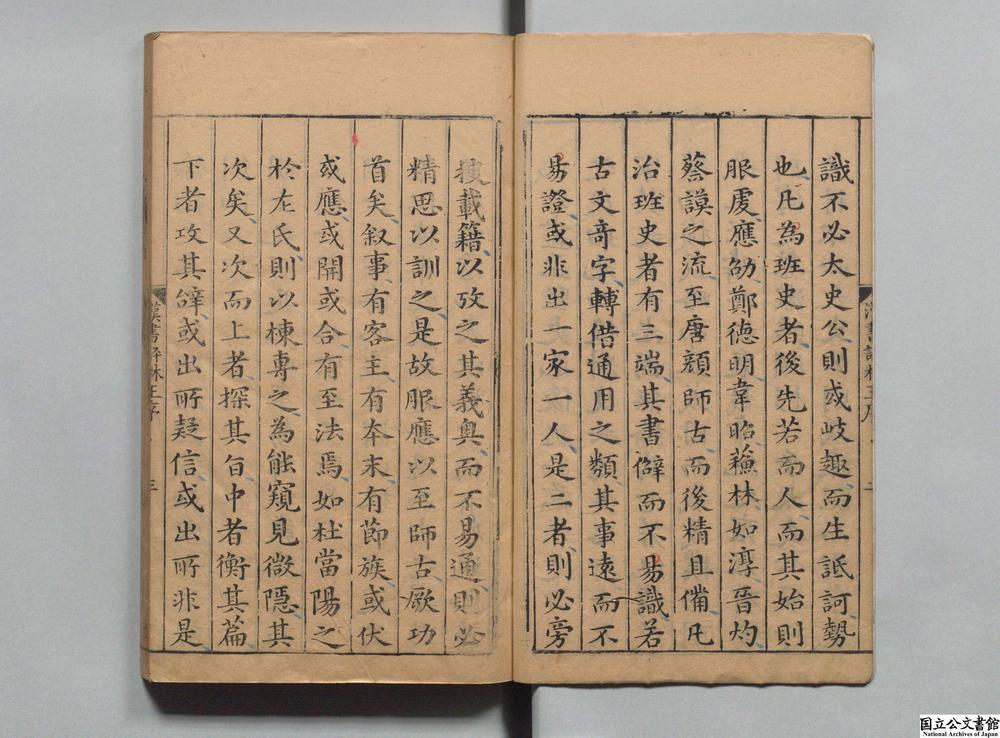 識不必太史公則或岐趣而生詆訶勢
也凡為班史者後先若而人而其始則
服虔應劭鄭德明韋昭蘓林如淳晉灼
蔡謨之流至唐顔師古而後精且備凡
治班史者有三端其書僻而不易識若
古文竒字轉借通用之類其事遠而不
易證或非出一家一人是二者則必旁
搜載籍以攷之其義奧而不易通則必
精思以訓之是故服應以至師古厥功
首矣叙事有客主有夲末有節族或伏
或應或開或合有至法焉如杜當陽之
於左氏則以棟專之為能窺見微隱其
次矣又次而上者探其旨中者衡其篇
下者攻其辭或出所疑信或出所非是
漢書評林王序
二
漢書評林王序
三
国立公文書館
National Archives of Japan